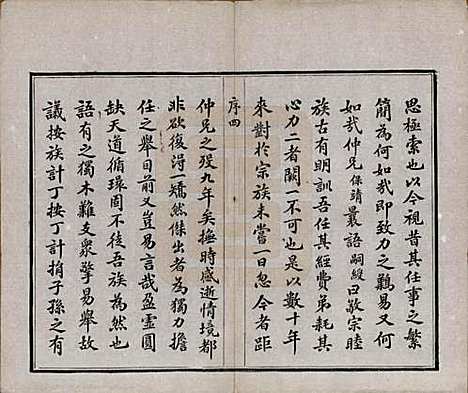 思極索也以今視昔其任事之繁
簡為何如哉即致力之難易又何
如哉仲兄保靖曩語嗣綬曰敬宗睦
族古有明訓吾任其經費弟耗其
心力二者闕一不可也是以數十年
來對於宗族未嘗一日忽今者距
序四
仲兄之歿九年矣撫時感逝情境都
非欲復得一矯然傑出者為獨力擔
任之舉目前又豈易言哉盈虛圓
缺天道循環固不徒吾族為然也
語有之獨木難支衆擎易舉故
議按族計丁按丁計捐子孫之有